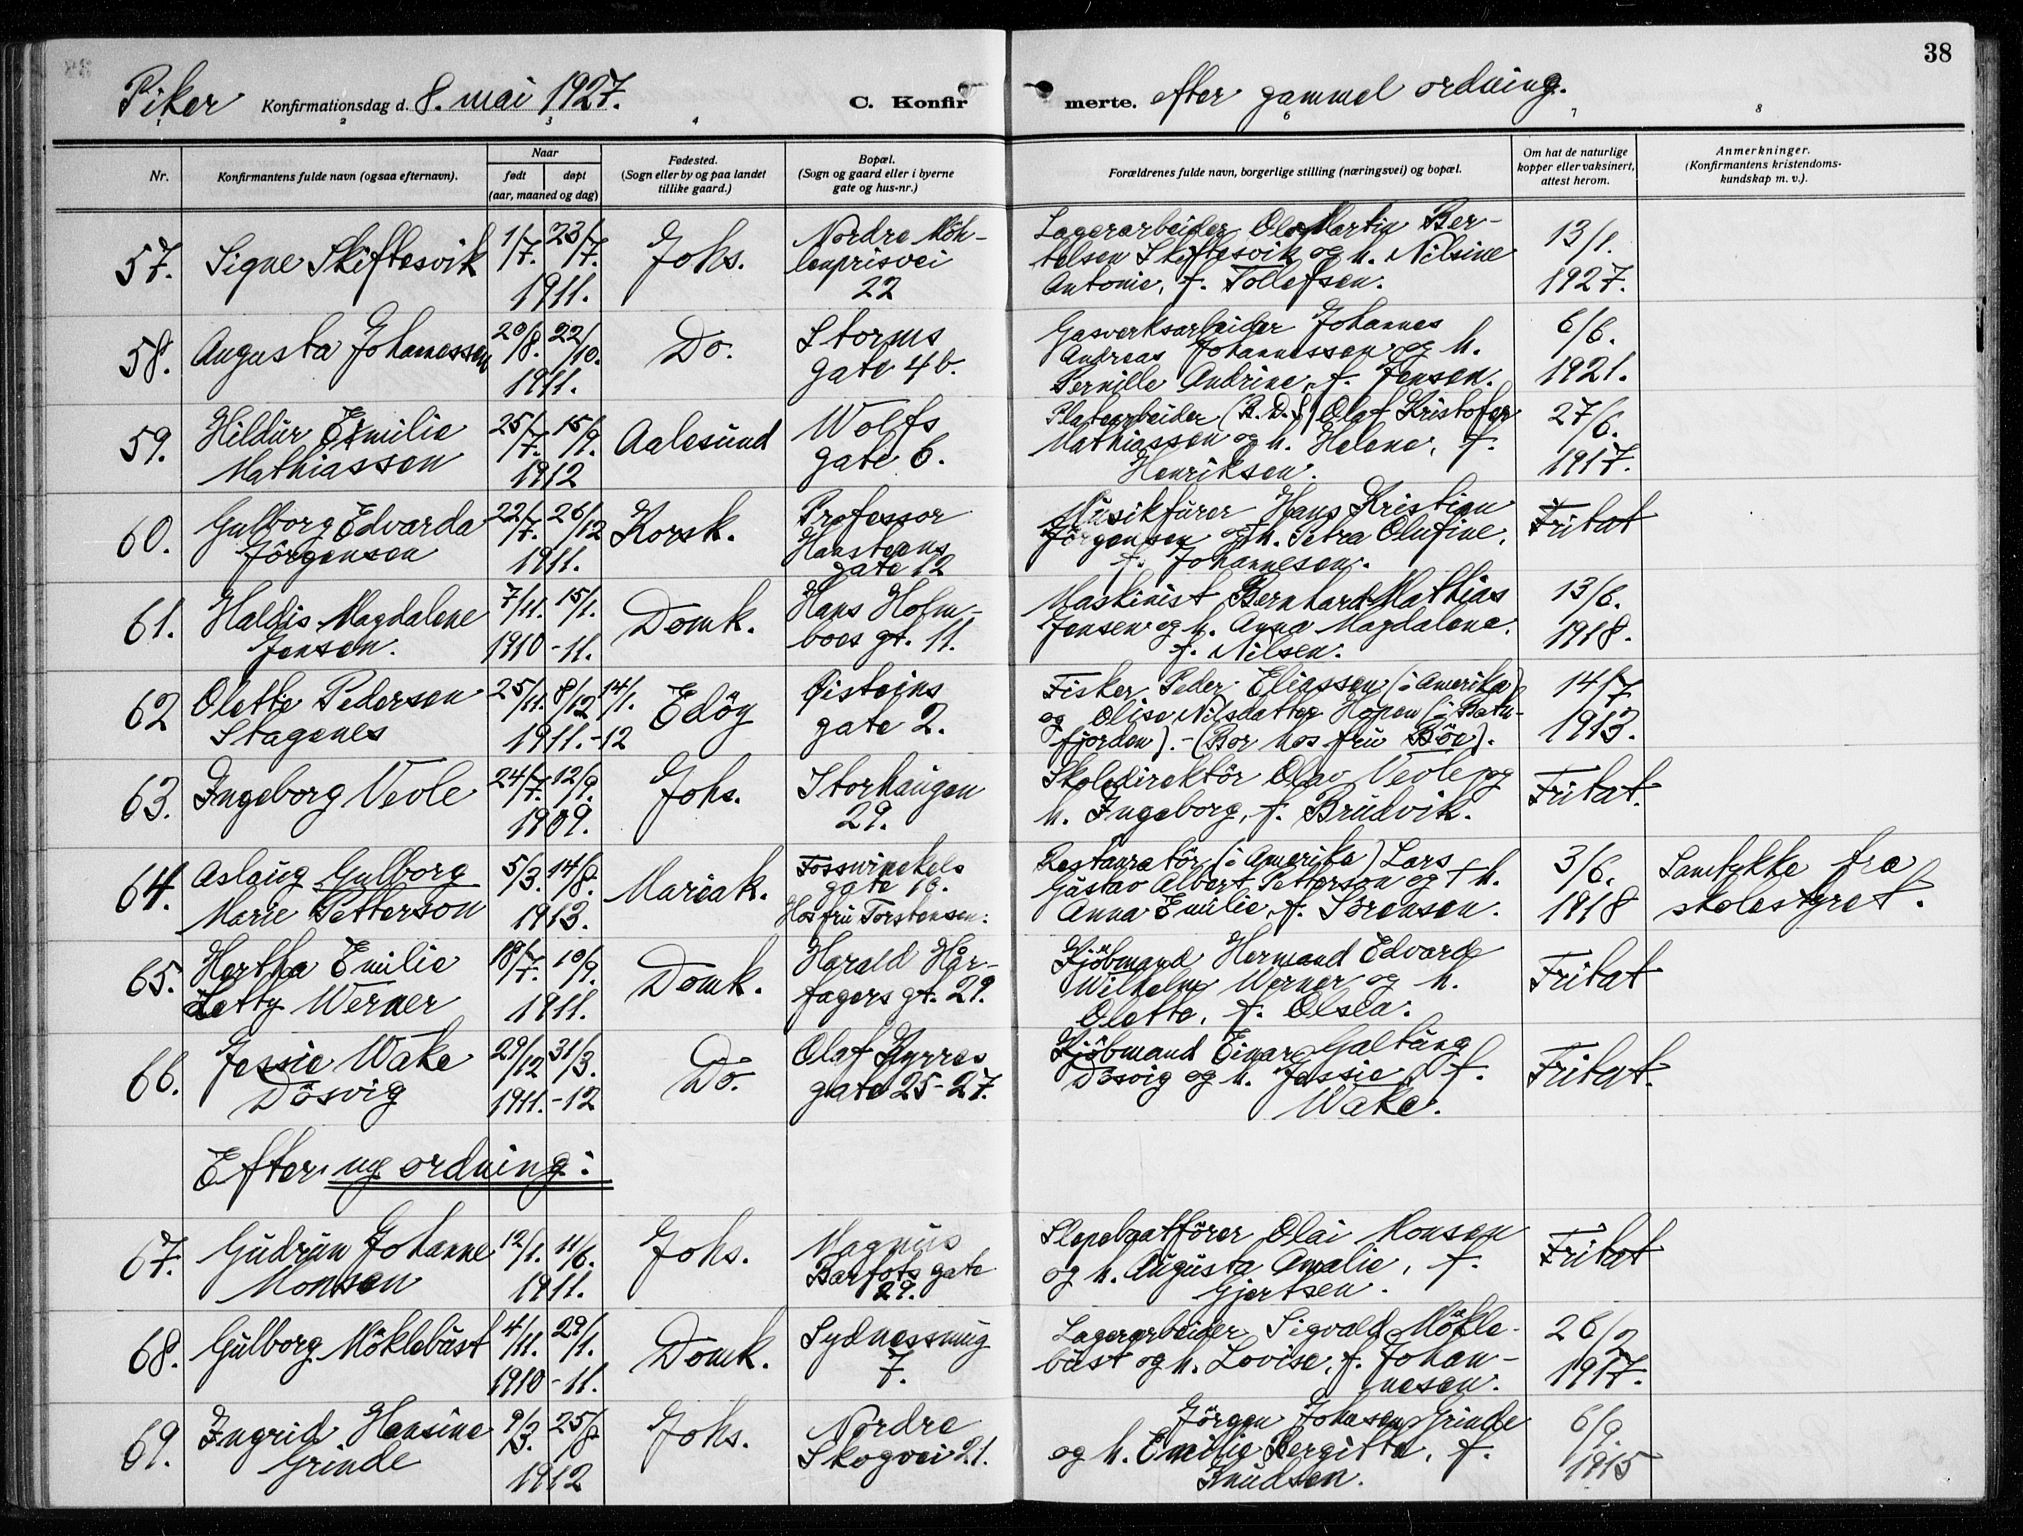 38
Piker Konfirmationsdag d. 8. mai 1927. C. Konfirmerte. efter gammel ordning.
1 2 3 4 6 7 8
Nr. Konfirmantens fulde navn (ogsaa efternavn). Naar født døpt (aar, maaned og dag) Fødested. (Sogn eller by og paa landet tillike gaard.) Bopæl. (Sogn og gaard eller i byerne gate og hus-nr.) Forældrenes fulde navn, borgerlige stilling (næringsvei) og bopæl. Om hat de naturlige kopper eller vaksinert, attest herom. Anmerkninger. (Konfirmantens kristendoms-kundskap m. v.).
57. Signe Skiftesvik 1/7. 23/7. 1911. Johs. Nordre Möh-lenprisvei 22 Lagerarbeider Ole Martin Ber-telsen Skiftesvik og h. Nilsine Antonie, f. Tollefsen. 13/1. 1927.
58. Augusta Johannessen 20/8. 22/10. 1911. Do. Storms gate 4b. Gasverksarbeider Johannes Andreas Johannessen og h. Pernille Andrine, f. Jensen. 6/6. 1921.
59. Hildur Emilie Mathiassen 25/7. 15/9. 1912 Aalesund Wolfs gate 6. Platearbeider (B. D. S.) Olaf Kristofer Mathiassen og h. Helene, f. Henriksen. 27/6. 1917.
60. Gulborg Edvarda Jörgensen 22/7. 26/12 1911. Korsk. Professor Hansteens gate 12 Musikfürer Hans Kristian Jörgensen og h. Petra Olufine, f. Johannesen. Fritat
61. Haldis Magdalene Jensen. 7/11. 15/1. 1910-11. Domk. Hans Holm-boes gt. 11. Maskinist Bernhard Mathias Jensen og h. Anna Magdalene. f. Nilsen. 13/6. 1918.
62 Olette Pedersen Stagenes 25/11. 8/12 14/1. 1911.-12 Edöy Øisteins gate 2. Fisker Peder Eliassen (i Amerika) og Olise Nilsdatter Hopen (i Batn-fjorden).-(Bor hos fru Böe). 14/7 1913.
63. Ingeborg Nevle 24/7. 12/9. 1909. Johs. Storhaugen 29. Skoledirektör Olav Nevle og h. Ingeborg, f. Brudvik. Fritat.
64. Aslaug Gulborg Marie Petterson 5/3. 14/8. 1913. Mariak. Fosswinckels gate 16. Hos fru Torstensen. Restauratör (i Amerika) Lars Gustav Albert Petterson og † h. Anna Emilie, f. Sörensen. 3/6. 1918 Samtykke fra skolestyret.
65. Hertha Emilie Letty Werner 18/7. 10/9. 1911. Domk. Harald Hår-fagers gt. 29. Kjöbmand Hermand Edvard Wilhelm Werner og h. Olette, f. Olsen. Fritat
66. Jessie Wake Dösvig 29/12 31/3. 1911.-12 Do. Olaf Kyrres gate 25-27. Kjöbmand Einar Galtung Dösvig og h. Jessie, f. Wake. Fritat.
Efter ny ordning:
67. Gudrun Johanne Monsen 12/1. 11/6. 1911. Johs. Magnus Barfots gate 29. Slepebaatförer Olai Monsen og h. Augusta Amalie, f. Gjertsen. Fritat
68. Gulborg Möklebust 4/11. 29/1. 1910-11. Domk. Sydnessmug 7. Lagerarbeider Sigvald Mökle-bust og h. Lovise, f. Johan-nesen. 26/2 1917.
69. Ingrid Hansine Grinde 9/3. 25/8 1912 Johs. Nordre Skogvei 21. Jörgen Johnsen Grinde og h. Emilie Bergitte, f. Knudsen. 6/9. 1915